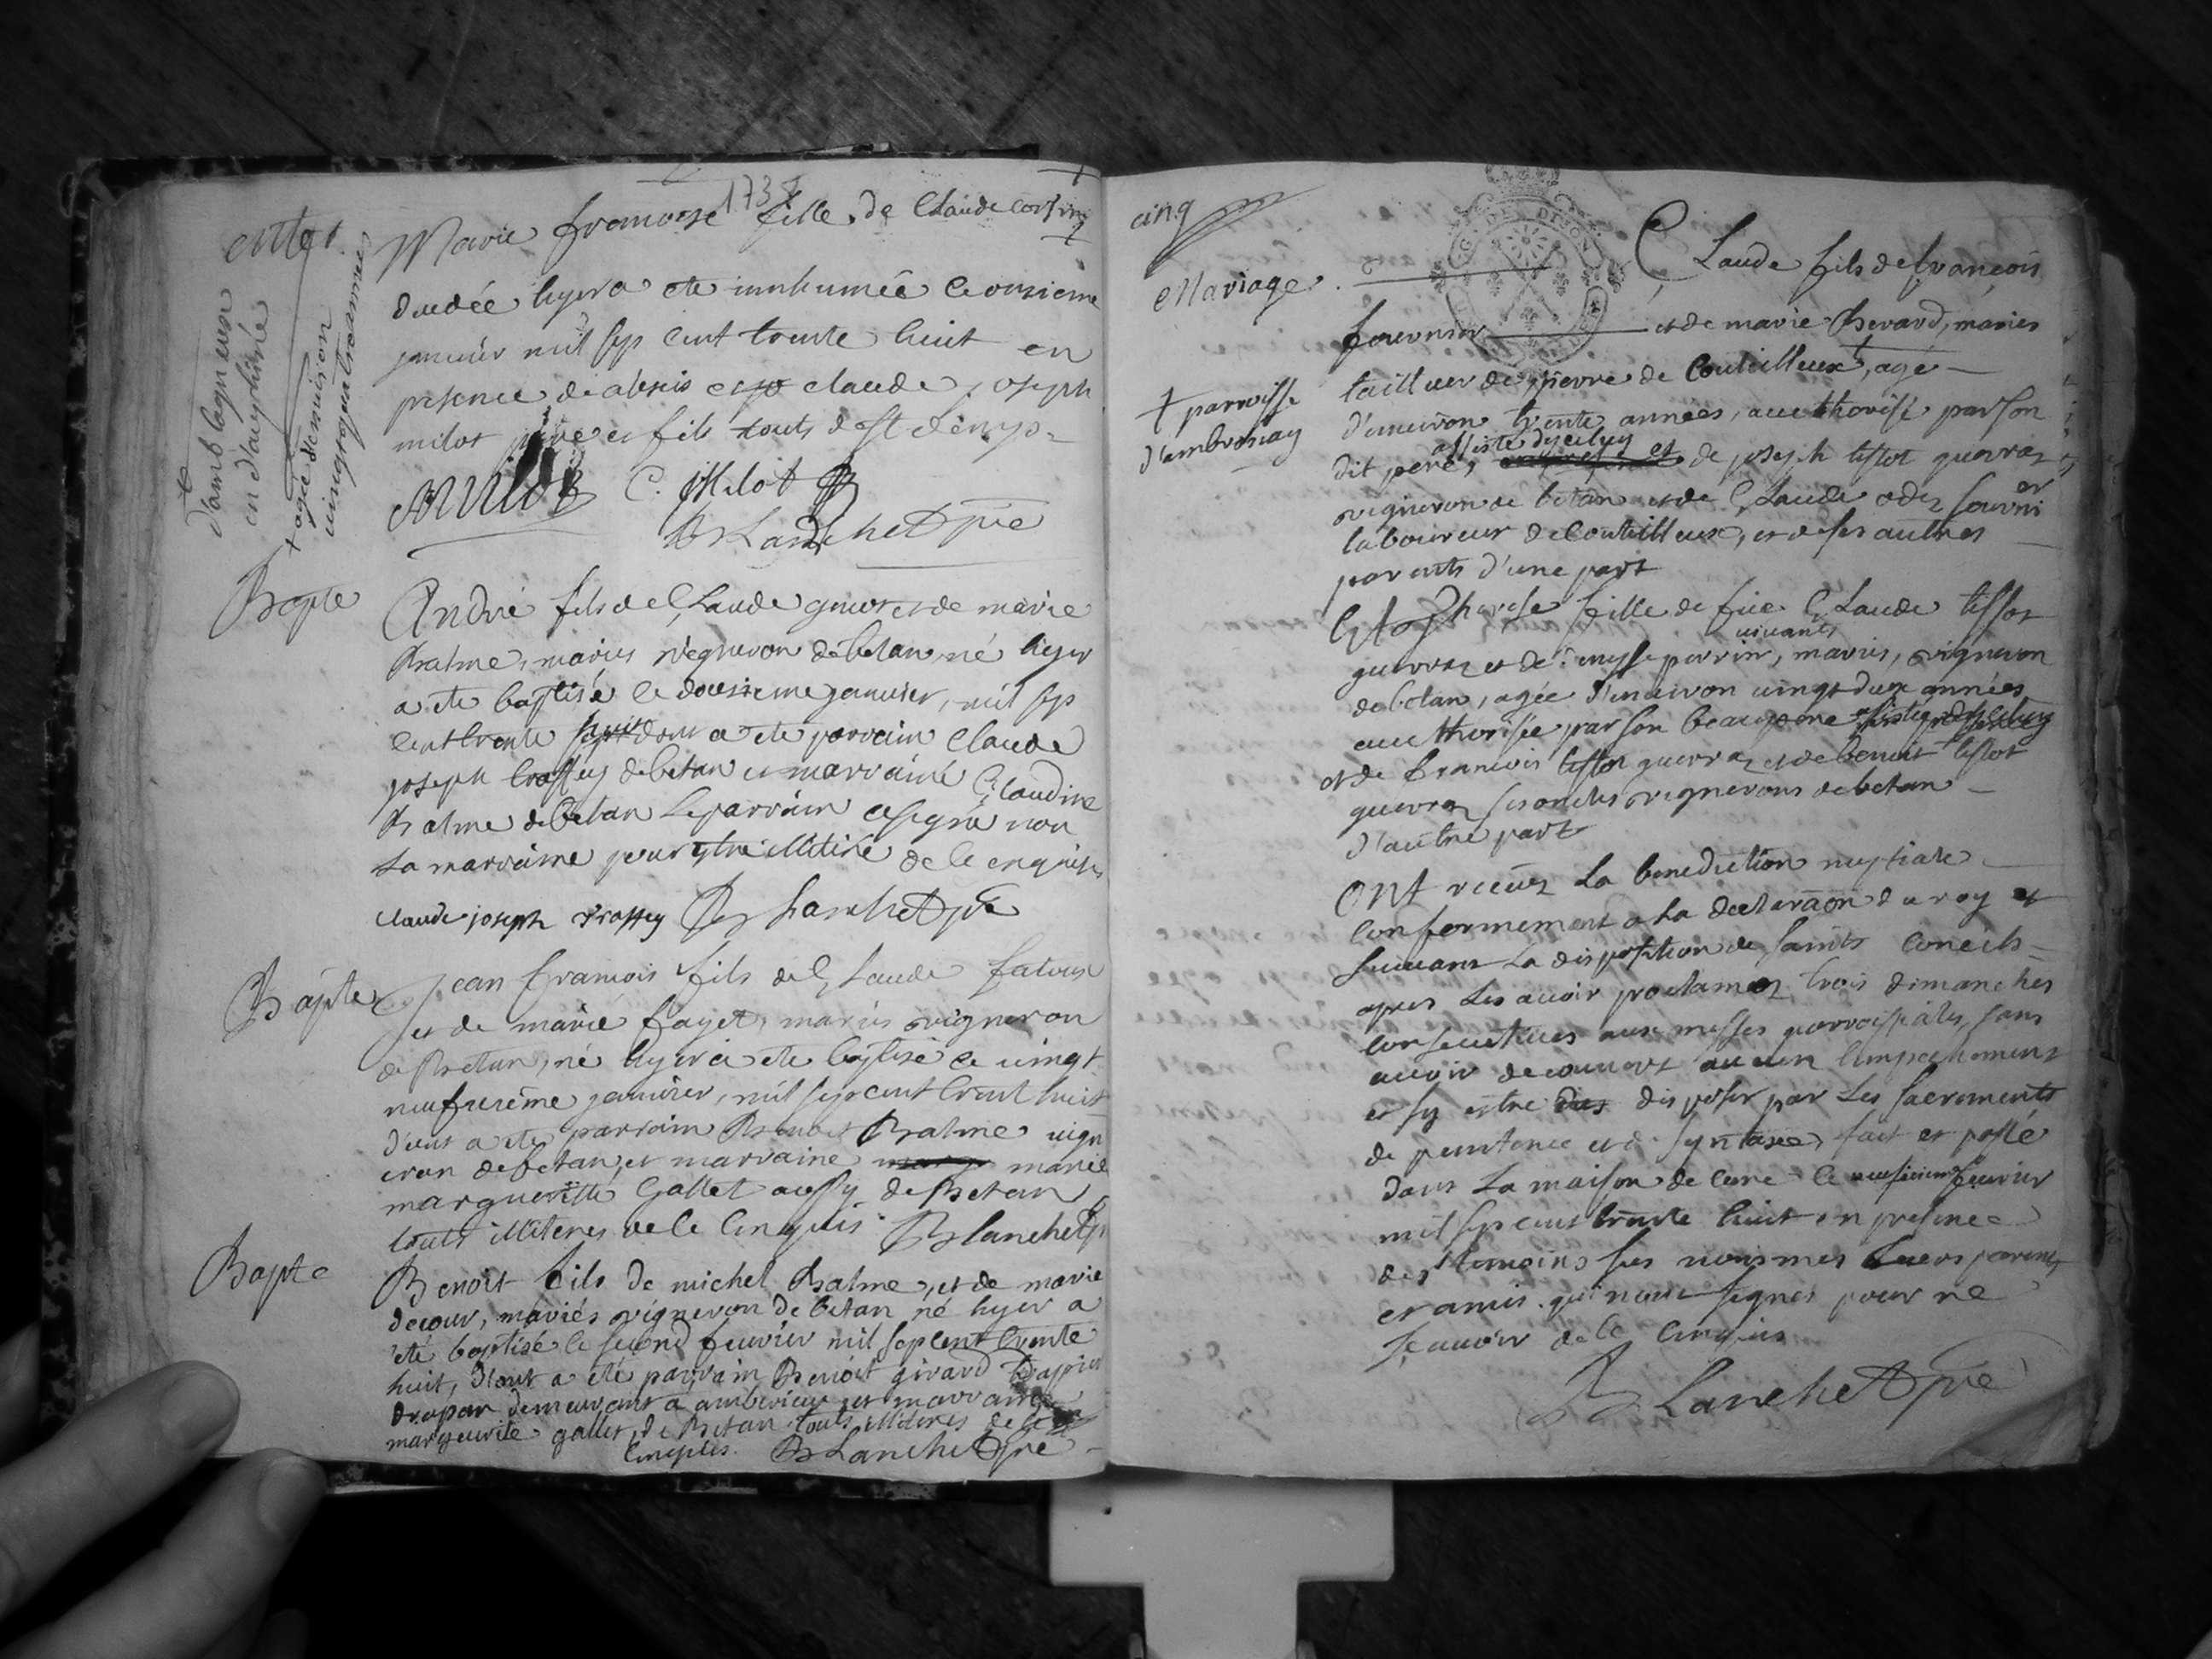 1738
enter
d'ambLagneux
en dauphiné
+ agée d'enuiron
uingt quatre année
Marie francoise fille de Claude
decedée hyer a ete innhumée le onsieme
januier mil sep cent trente huit en
presence de alexis et claude joseph
milot pere et fils touts de st denys
AMilot C. j Milot
BLanchet pre
Bapte
André fils de CLaude guiot et de marie
Balme, mariés vigneron de betan, né hyer
a ete baptisé le dousieme januier, mil sep
cent trente huit dont a ete parrain Claude
joseph traffey de betan et marraine CLaudine
Balme de betan Le parrain a signé non
La marraine pour estre illitiré de ce enquise
claude joseph traffey BLanchet pre
Bapte
jean francois fils de CLaude
et de marie fayet, mariés vigneron
de Betan, né hyer a ete baptisé le uingt
neufuieme januier, mil sep cent trent huit
d'ont a ete parrain Benoit Balme uign
eron de betan, et marraine marie
margueritte Gallet aussy de Betan
touts illiteres de ce enquis BLanchet p
Bapte
Benoit fils de michel Balme, et de marie
decour, mariés vigneron de betan né hyer a
été baptisé le second feurier mil sep cent trente
huit, d'ont a été parrain Benoit girard
drapar demeurant a amberieux et marraine
marguerite gallet de Betan touts illiteres de ce
enquis. BLanchet pre
cinq
Mariage
CLaude fils de francois
fournier et de marie Berard, mariés
tailleur de pierre de Couteillieux +, agé
+ parroisse
d'ambronay
d'enuiron trente années, aucthorisé par son
assisté d'yceluy
dit pere, et de joseph tissot guerraz
vigneron de betan et de CLaude odez
laboureur de Couteillieux, et de ses autres
parents d'une part
Et Therese fille de feu CLaude tissot
uiuants
guerraz et de denyse perrin, mariés, vigneron
de betan, agée d'enuiron uingt deux années
aucthorisée par son beaupere assistée d'yceluy
et de francois tissot guerraz et de benoit tissot
guerraz ses oncles vignerons de betan
d'autre part
ONt receus La benediction nuptiale
conformement a La declaraon du roy et
suiuant La disposition des saints Concils
apres Les auoir proclamez trois dimanches
consecutiues aux messes parroissiales, sans
auoir decouuert aucun empechement
et sy estre disposés par Les sacrements
de penitence et de synaxe, fait et passé
dans La maison de cure le neufuieme feurier
mil sep cent trente huit en presence
des temoins sus nommés Leurs parents
et amis qui n'ont signés pour ne
sçauoir de ce enquis
BLanchet pre